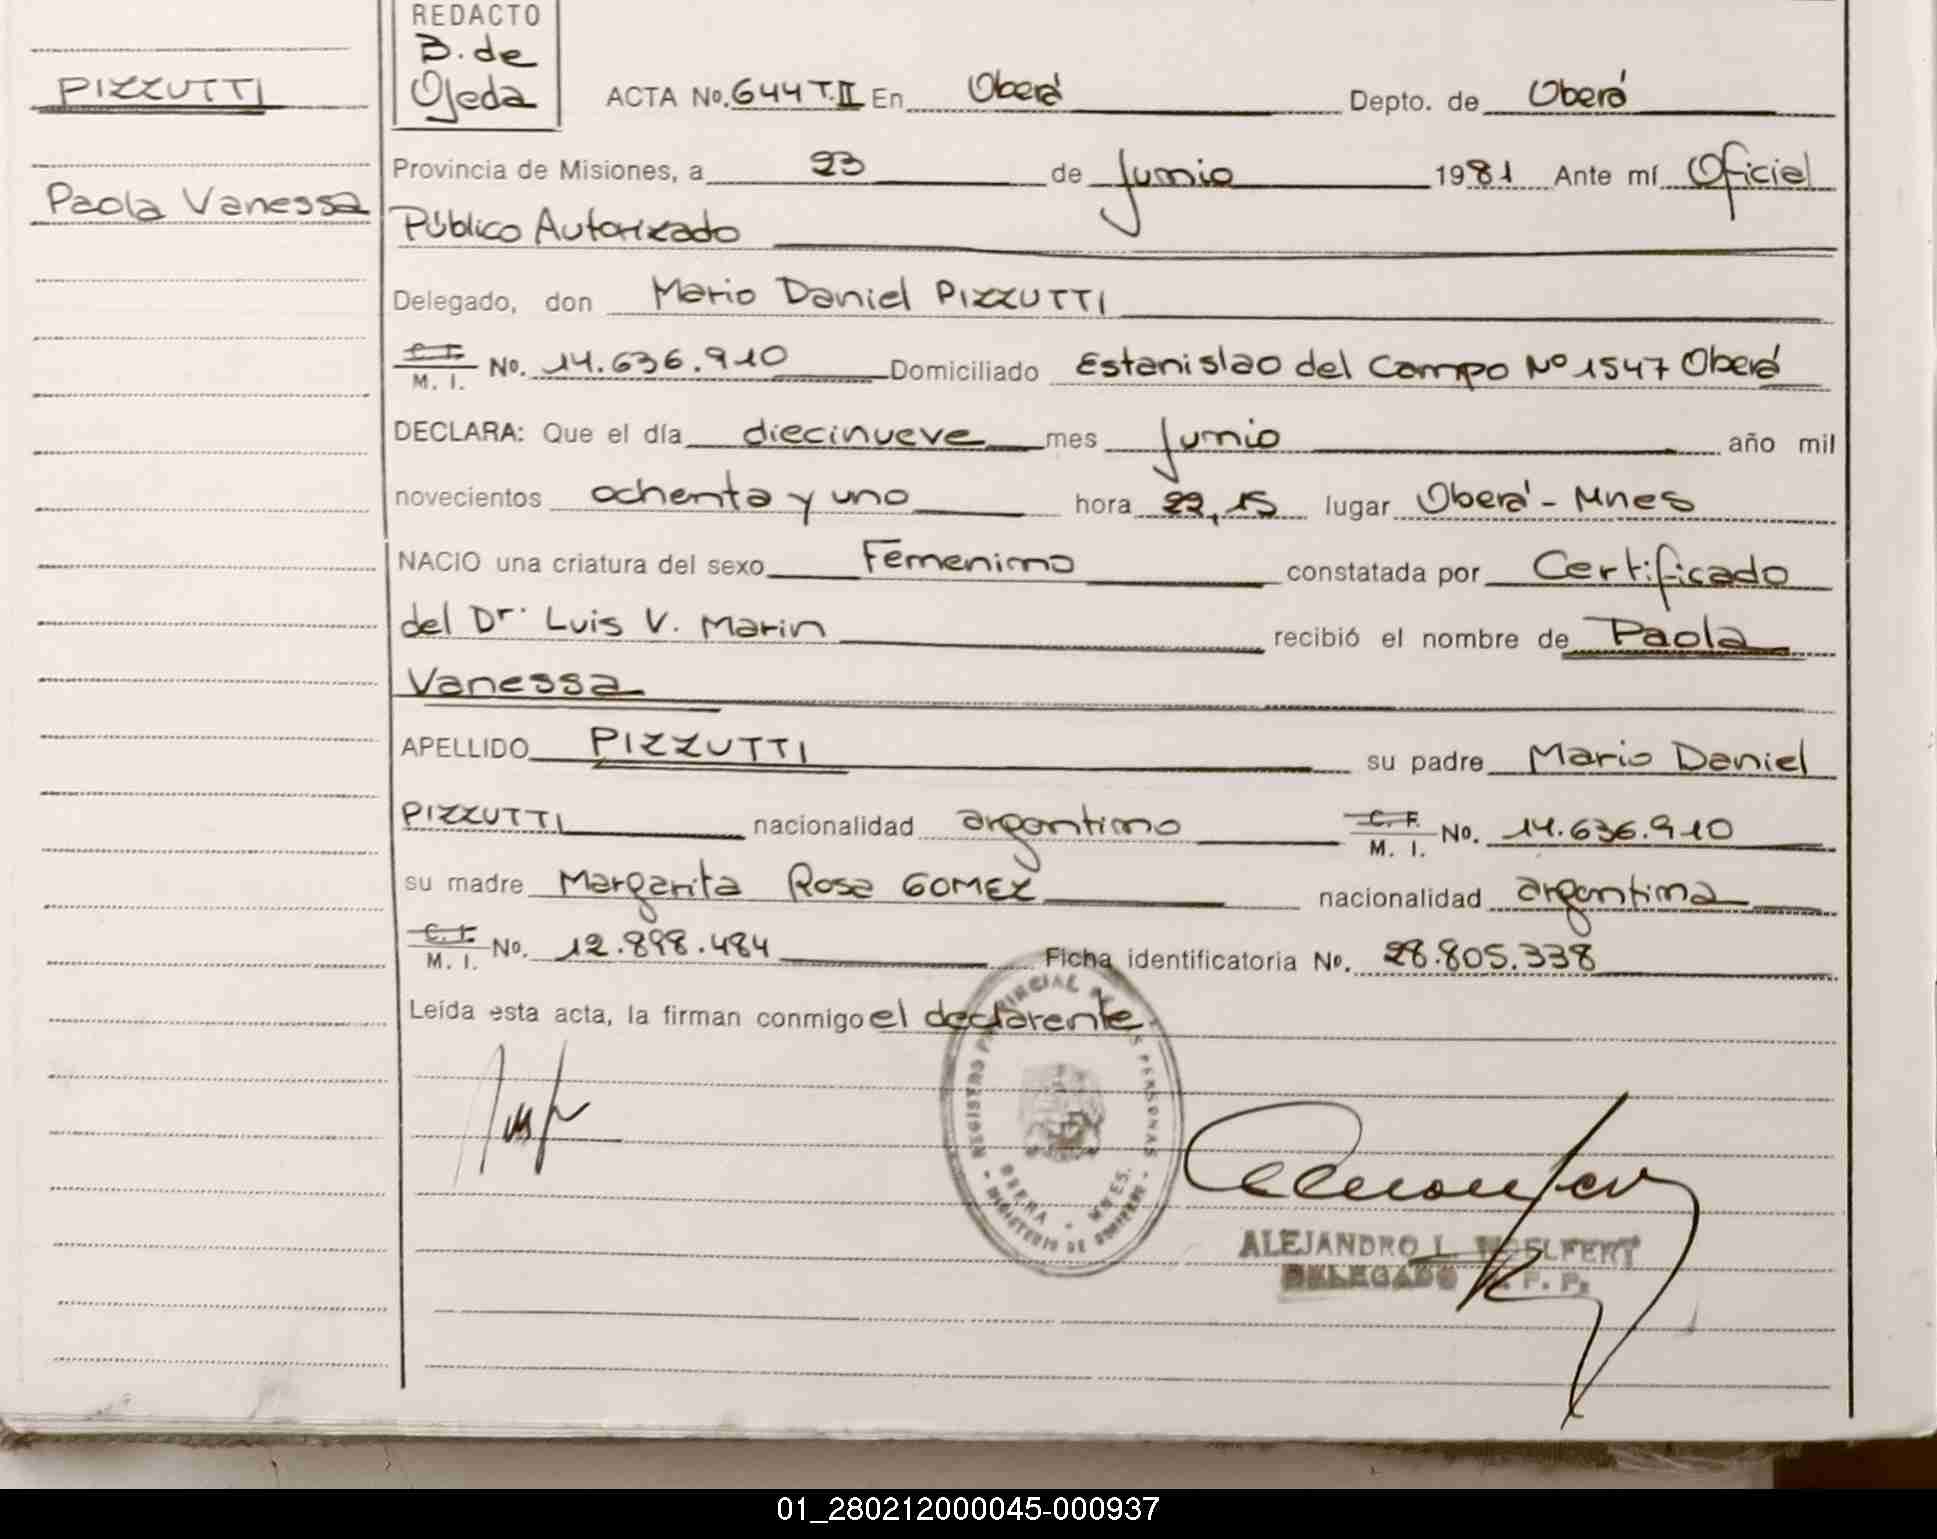 REDACTO
B. de
Ojeda
PIZZUTTI
Paola Vanessa
ACTA No. 644 T.II En Oberá Depto. de Oberá
Provincia de Misiones, a 23 de Junio 1981 Ante mí Oficial
Público Autorizado
Delegado, don Mario Daniel PIZZUTTI
C. I.
M. I. No. 14.636.910 Domiciliado Estanislao del Campo Nº 1547 Oberá
DECLARA: Que el día diecinueve mes Junio año mil
novecientos ochenta y uno hora 22,15 lugar Oberá - Mnes
NACIO una criatura del sexo Femenino constatada por Certificado
del Dr. Luis V. Marin recibió el nombre de Paola
Vanessa
APELLIDO PIZZUTTI su padre Mario Daniel
PIZZUTTI nacionalidad argentino C. I. M. I. No. 14.636.910
su madre Margarita Rosa GOMEZ nacionalidad argentina
C. I.
M. I. No. 12.898.484 Ficha identificatoria No. 28.805.338
Leída esta acta, la firman conmigo el declarante
REGISTRO PROVINCIAL DE LAS PERSONAS
OBERA - MNES.
MINISTERIO DE GOBIERNO
ALEJANDRO L. WOELFERT
DELEGADO R. P. P.
01_280212000045-000937